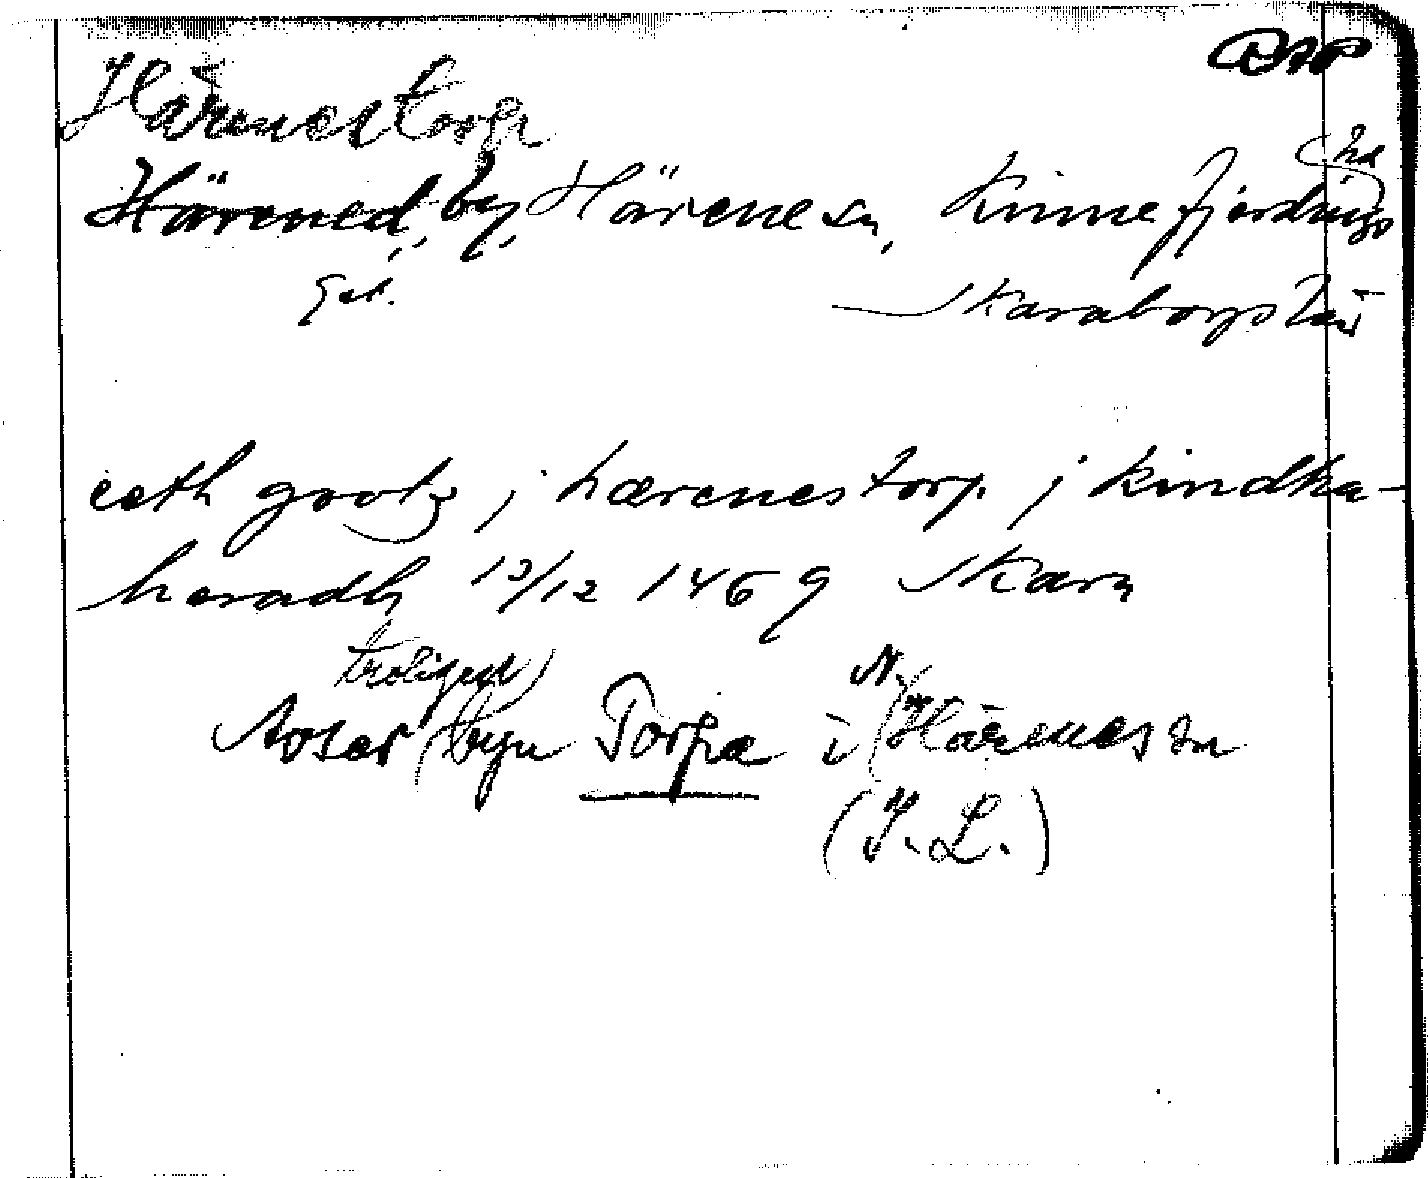 Härenestorp
Härened, by, Härene sn, Kinnefjerdings hd
Gat.
Skaraborgs län
eeth gootz j hærenestorp j kindha-
heradh 13/12 1469 Skara
troligen N.
Avser byn Torpa i Härenes sn
(I. L.)